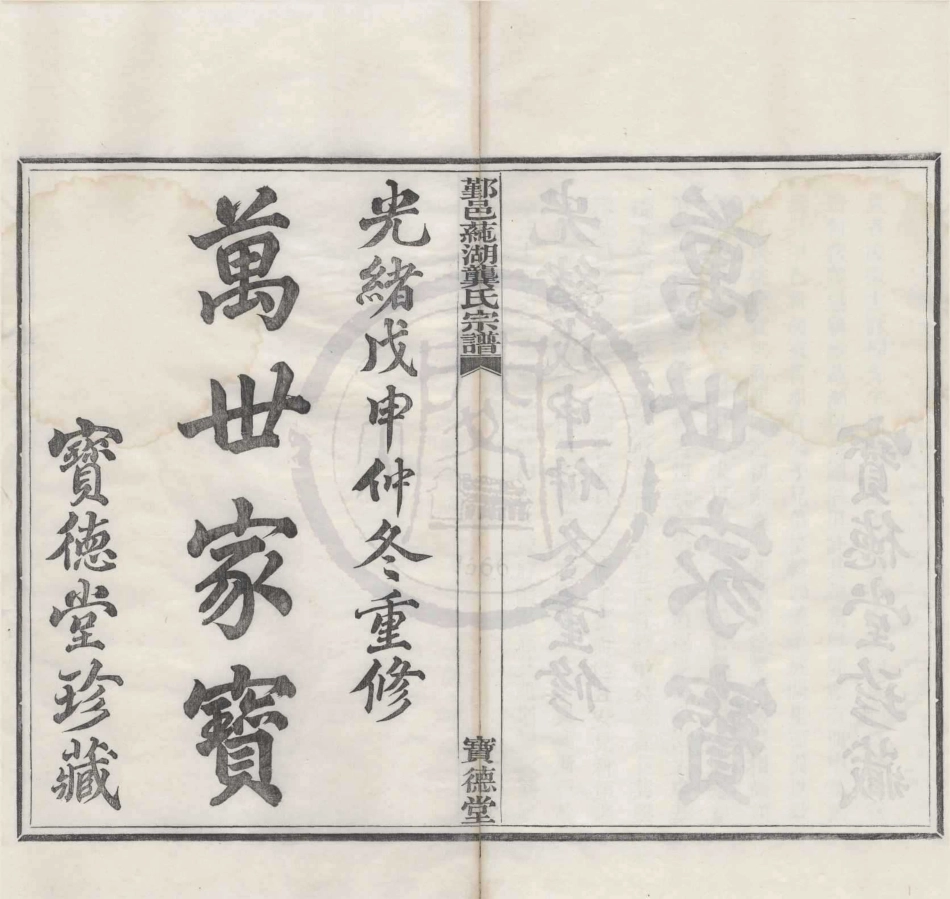 鄞邑蒓湖龔氏宗譜
寶德堂
光緒戊申仲冬重修
萬世家寶
寶德堂珍藏